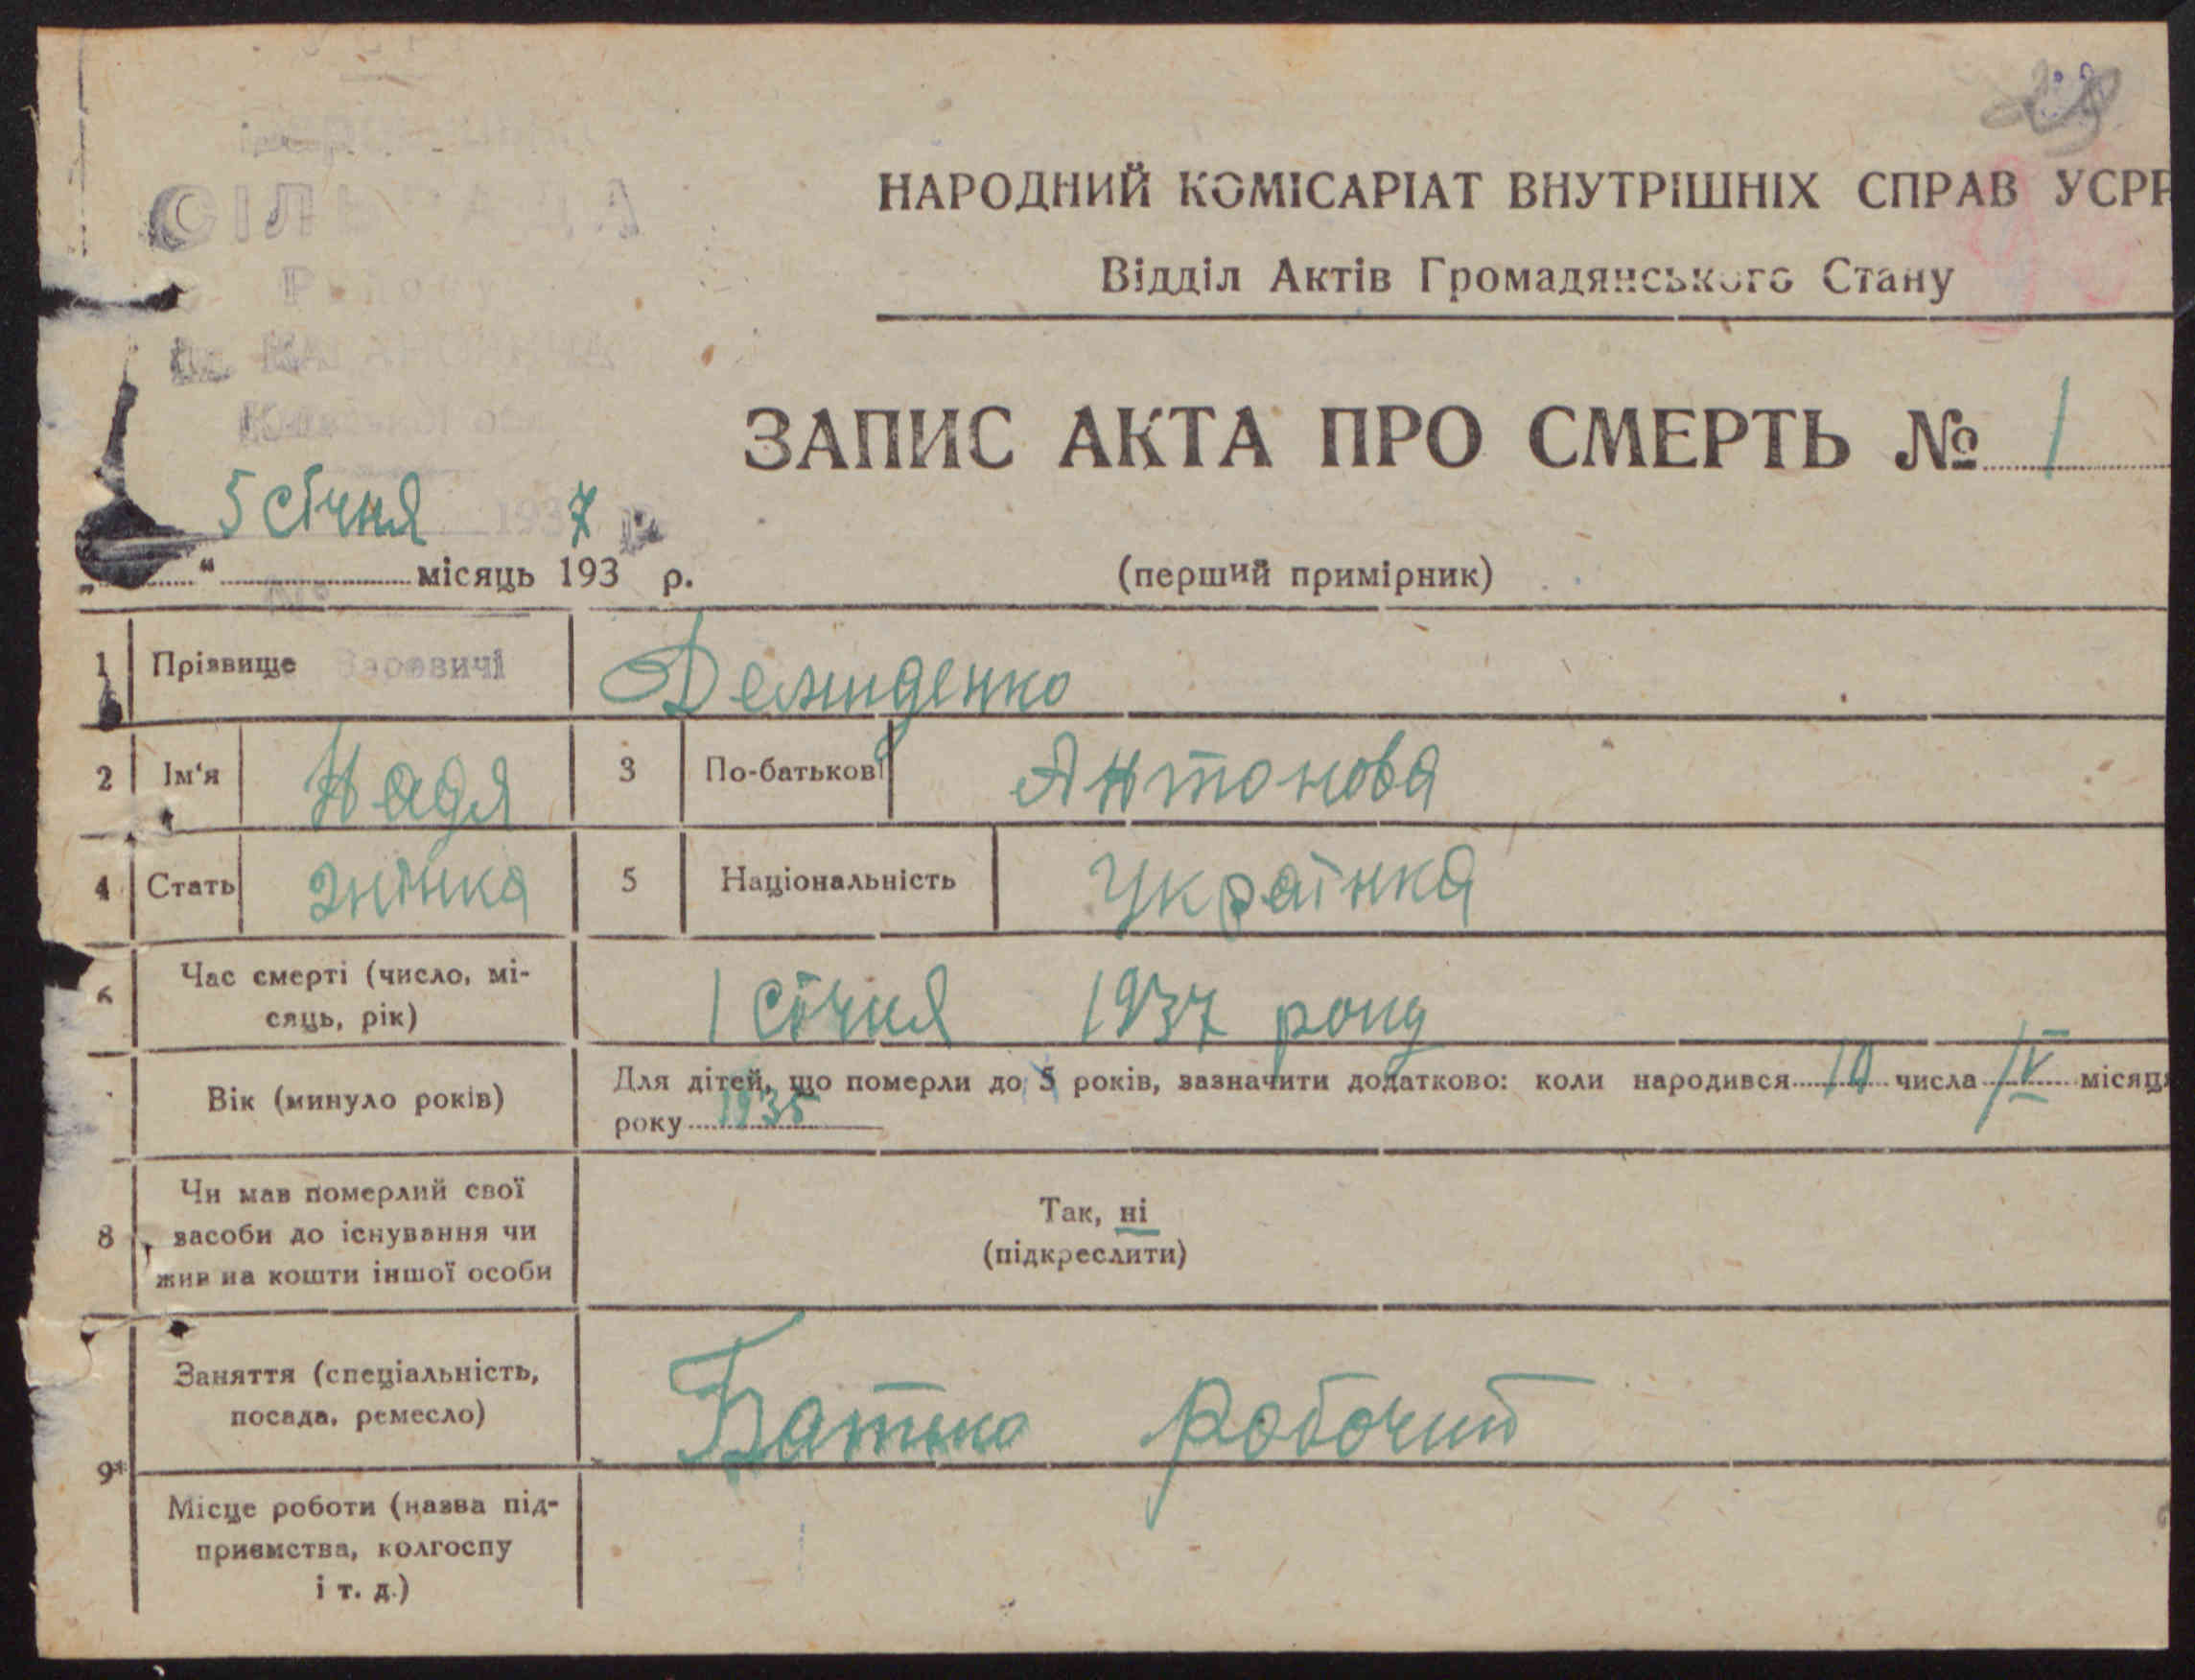 СІЛЬРАДА
Району
НАРОДНИЙ КОМІСАРІАТ ВНУТРІШНІХ СПРАВ УСРР
Відділ Актів Громадянського Стану
ЗАПИС АКТА ПРО СМЕРТЬ № 1
5 січня 1937
„ “ місяць 193 р.
(перший примірник)
1 Прізвище Демиденко
2 Ім'я Надя 3 По-батькові Антонова
4 Стать жінка 5 Національність Українка
6 Час смерті (число, мі-
сяць, рік) 1 січня 1937 року
Вік (минуло років) Для дітей, що померли до 5 років, зазначити додатково: коли народився 10 числа IV місяця
року 1935
8 Чи мав померлий свої
засоби до існування чи
жив на кошти іншої особи
Так, ні
(підкреслити)
9* Заняття (спеціальність,
посада, ремесло) Батько робочий
Місце роботи (назва під-
приємства, колгоспу
і т. д.)